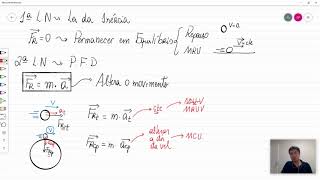 1ª LN → Lei da Inércia
F_R = 0 → Permanecer em Equilíbrio { Repouso V=0
MRU V=cte
2ª LN → P F D
F_R = m · a → Altera o movimento
V a_t F_Rt
F_Rt = m · a_t → MRUV
V F_cp
F_Rcp = m · a_cp → alterar a dir da vel → MCU